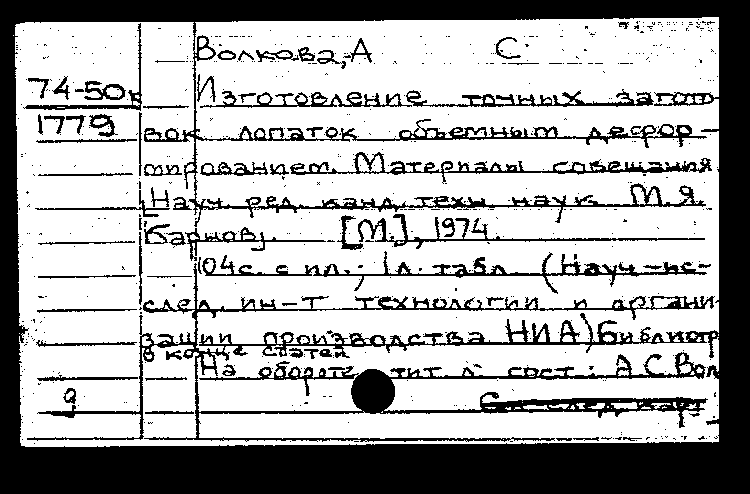 Волкова, А С.
74-50к Изготовление точных загото-
1779 вок лопаток объемным дефор-
мированием. Материалы совещания
[Науч. ред. канд. техн. наук М. Я.
Карнов]. [М.], 1974.
104с. с ил.; 1л. табл. (Науч.-ис-
след. ин-т технологии и органи-
зации производства НИАТ) Библиогр
в конце статей
На обороте тит. л. сост.: А С. Вол
9 См след карт